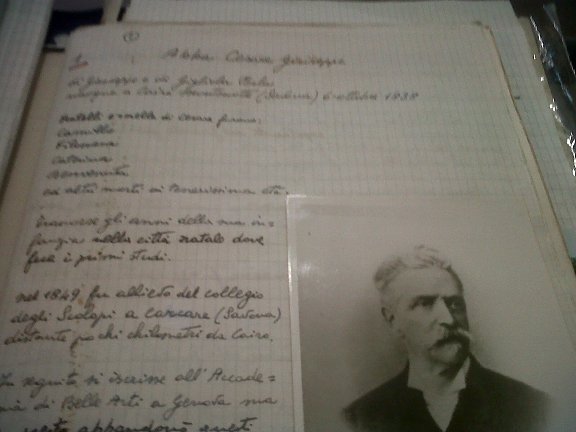 ①
Abba Cesare Giuseppe
di Giuseppe e di Gigliosa Perla
nacque a Cairo Montenotte (Savona) 6 ottobre 1838
fratelli e sorelle di Cesare furono:
Camillo
Filomena
Caterina
Benvenuta
ed altri morti in tenerissima età.
trascorse gli anni della sua in=
fanzia nella città natale dove
fece i primi studi.
nel 1849 fu allievo del collegio
degli Scolopi a Carcare (Savona)
distante pochi chilometri da Cairo.
In seguito si iscrisse all'Accade=
mia di Belle Arti a Genova ma
abbandonò questi